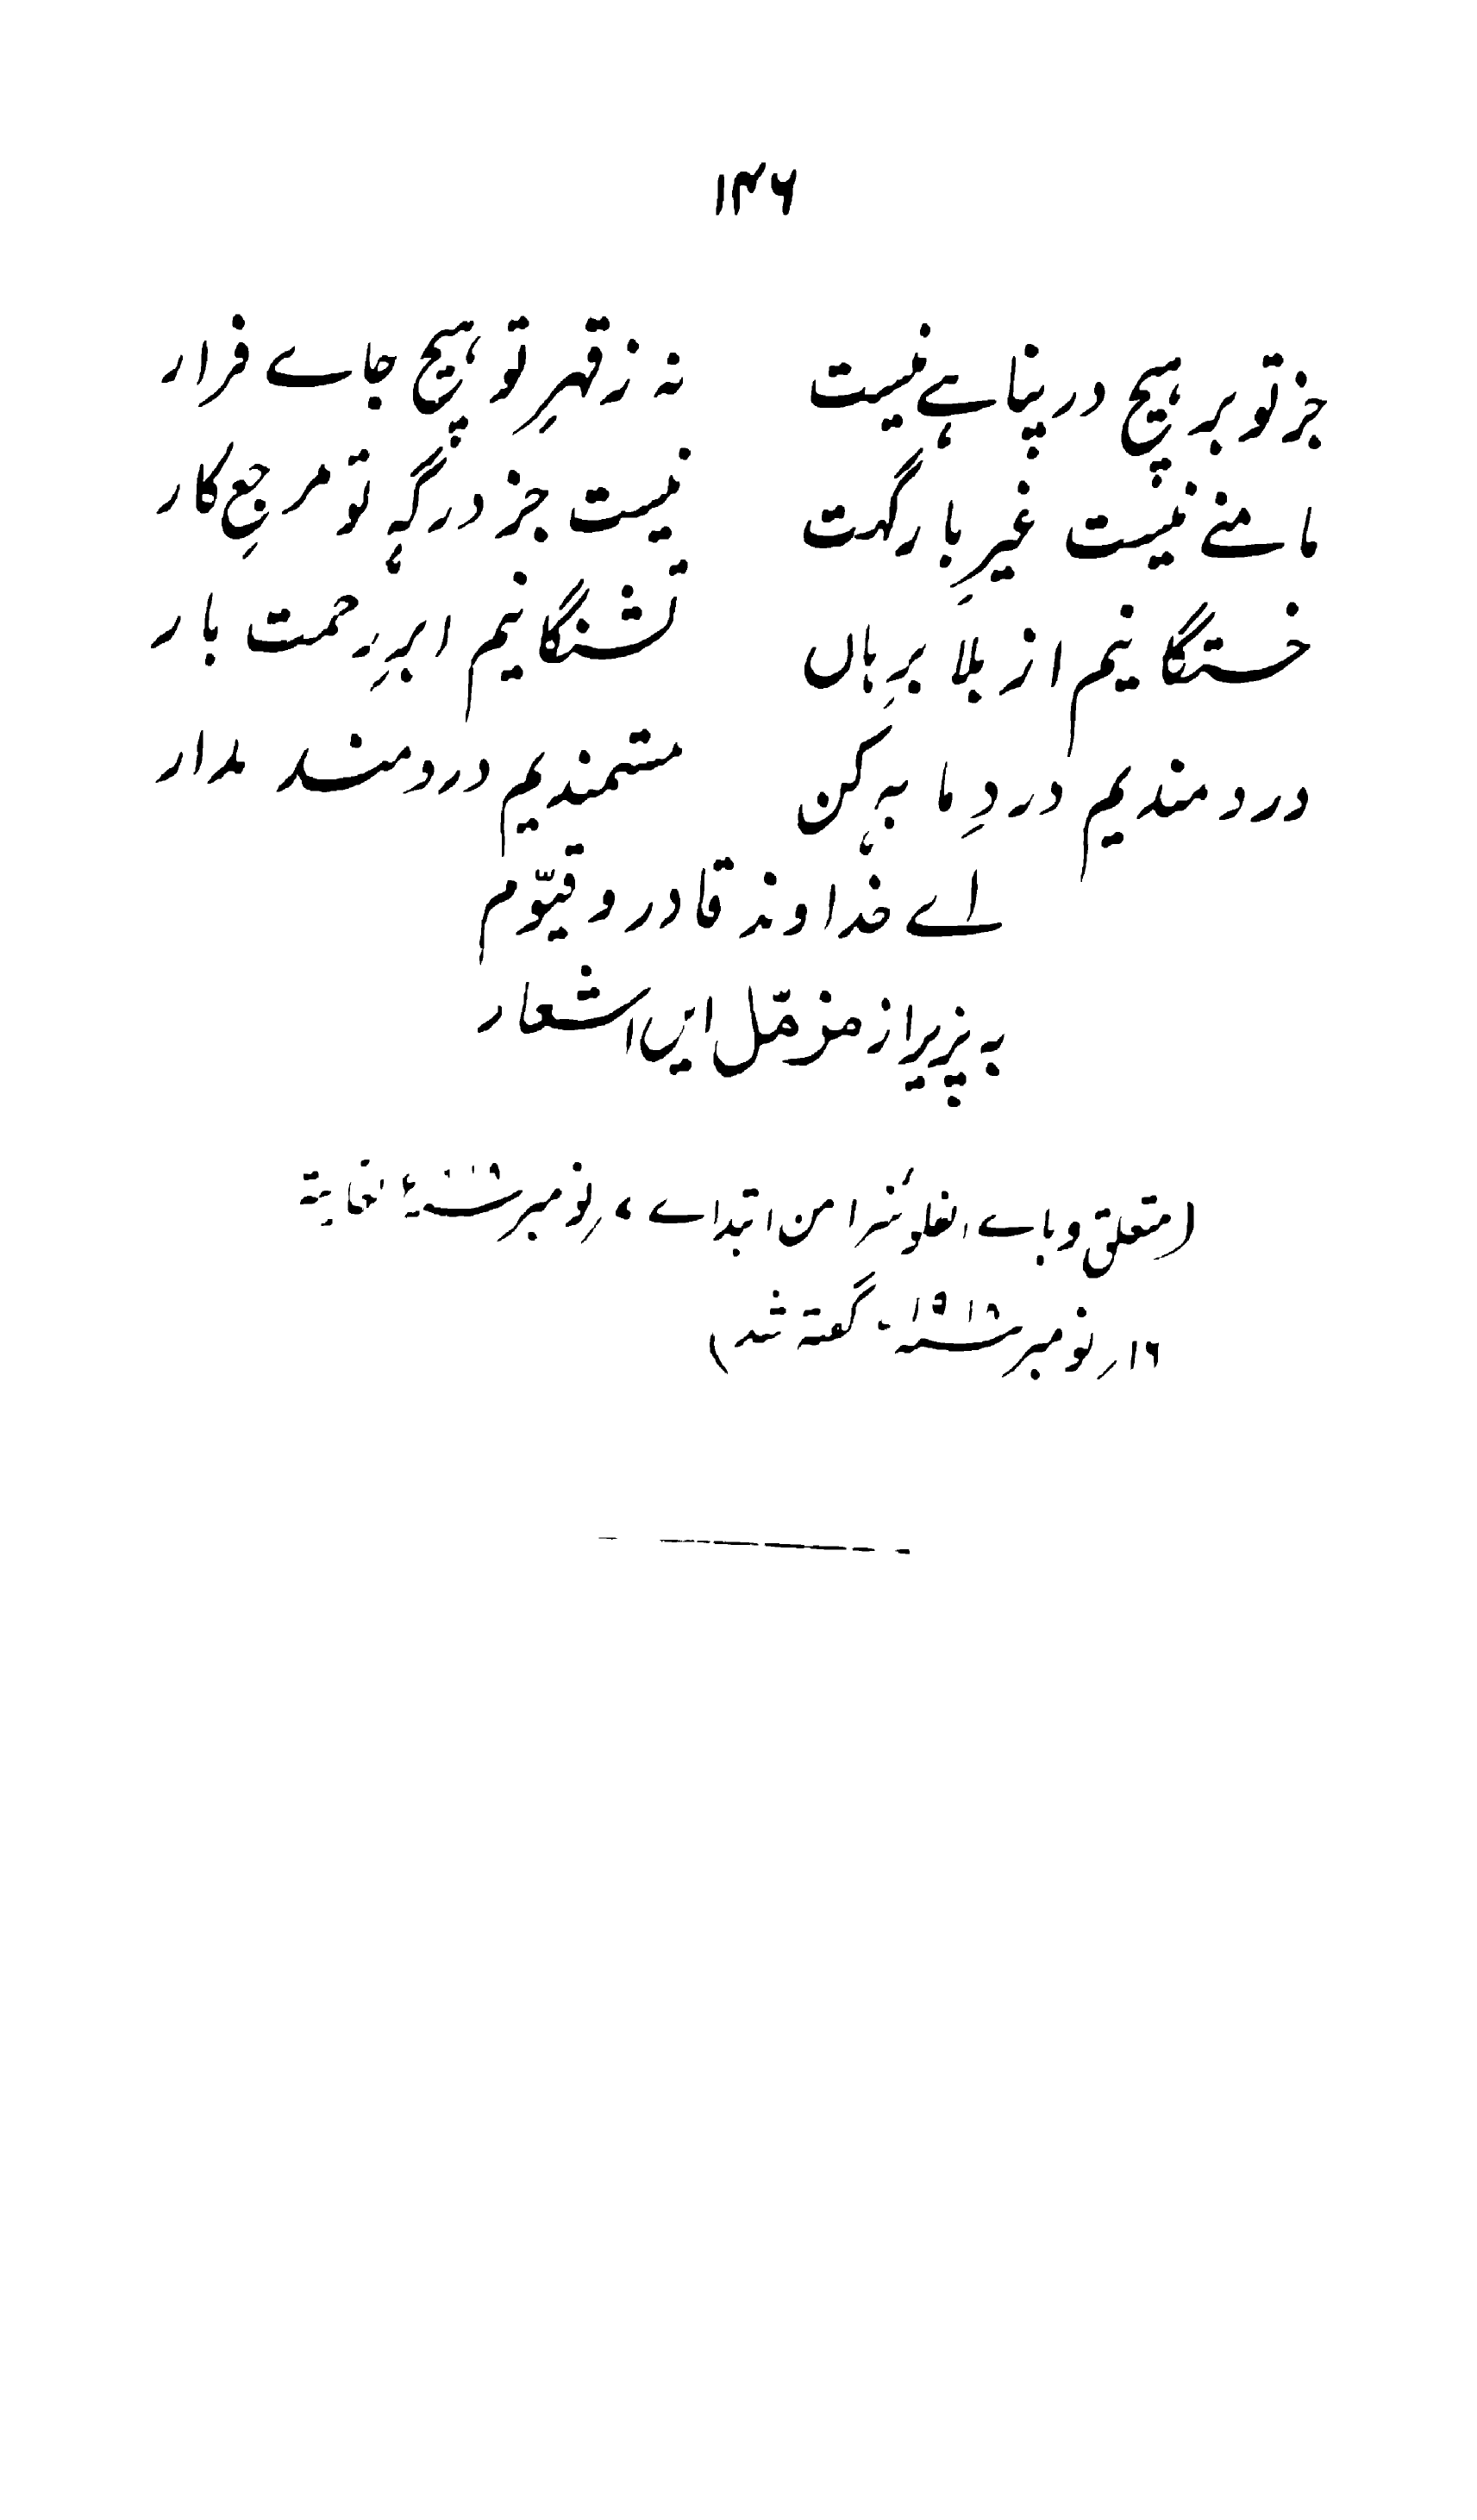 ۱۳۶
جز تو بر ہیچ در پناہے نیست نہ ز قہرِ تو ہیچ جاے فرار
مامنے نیست غیر بارگہت نیست جز درگہِ تو مرجعِ کار
خستگانیم از بلا برہاں تشنگانیم ابرِ رحمت بار
دردمندیم دردِ ما بہ کن مستمندیم دردمند مدار
اے خداوند قادر و قیّوم
بپذیر از مقل این اشعار
(متعلق وباے انفلوئنزا من ابتداے ۱ نومبر سنہ ۱۹۱۸ء لغایتہ
۱۶ر نومبر سنہ ۱۹۱۸ء گفتہ شد)